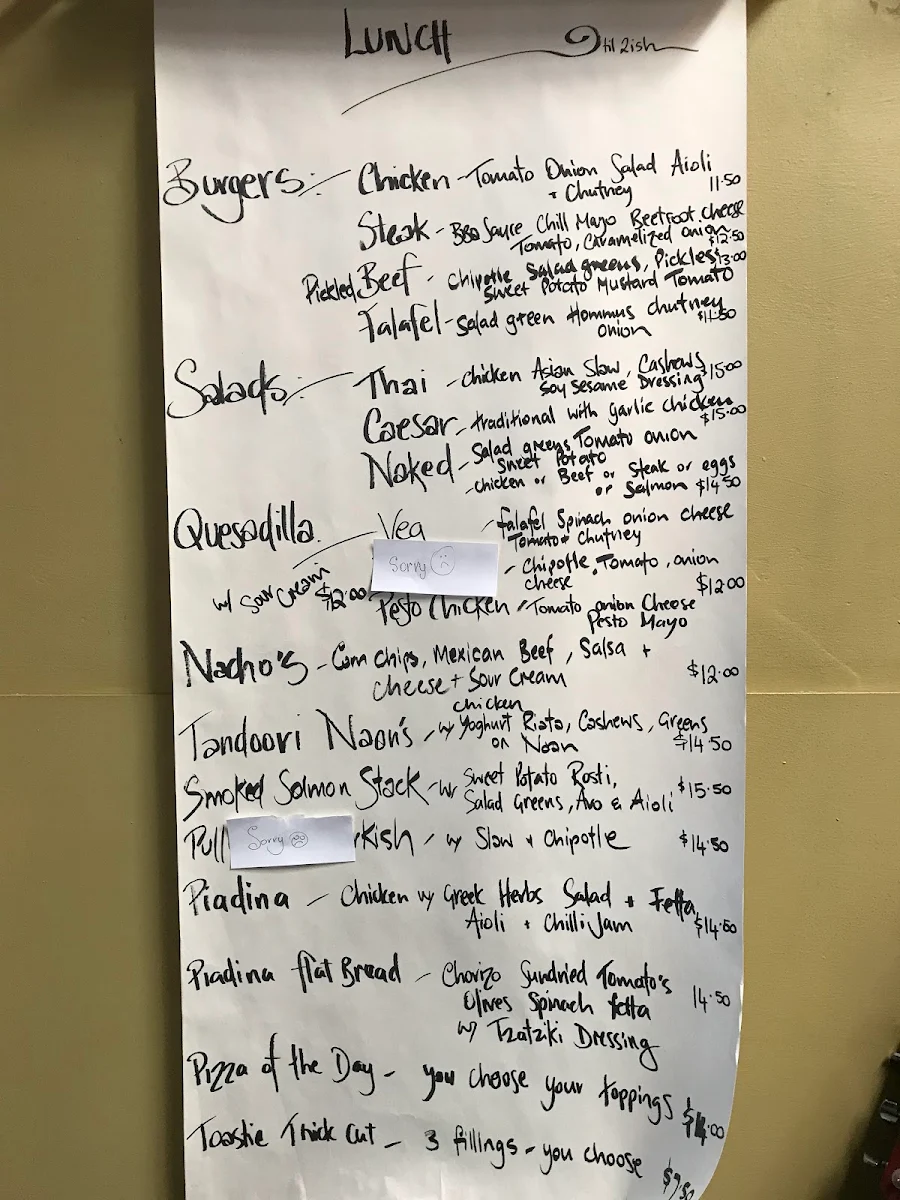 LUNCH til 2ish
Burgers:- Chicken - Tomato Onion Salad Aioli
+ Chutney 11.50
Steak - BBQ Sauce Chill Mayo Beetroot cheese
Tomato, Caramelized onion $12.50
Pickled Beef - Chipotle Salad greens, Pickles $13.00
Sweet Potato Mustard Tomato
Falafel - Salad green Hommus chutney
onion $11.50
Salads:- Thai - Chicken Asian Slaw, Cashews
Soy Sesame Dressing $15.00
Caesar - traditional with garlic chicken
$15.00
Naked - Salad greens Tomato onion
Sweet Potato
- Chicken or Beef or Steak or eggs
or Salmon $14.50
Quesadilla Veg - falafel Spinach onion cheese
Tomato + Chutney
Sorry - Chipotle, Tomato, onion
cheese
w/ Sour Cream $12.00 $12.00
Pesto Chicken - Tomato onion Cheese
Pesto Mayo
Nacho's - Corn chips, Mexican Beef, Salsa +
cheese + Sour Cream $12.00
chicken
Tandoori Naan's - w/ Yoghurt Riata, Cashews, Greens
on Naan $14.50
Smoked Salmon Stack - w/ Sweet Potato Rosti,
Salad Greens, Avo & Aioli $15.50
Pull Sorry rkish - w/ Slaw + Chipotle $14.50
Piadina - Chicken w/ Greek Herbs Salad + Fetta,
Aioli + Chilli Jam $14.50
Piadina flat Bread - Chorizo Sundried Tomato's
Olives Spinach fetta 14.50
w/ Tzatziki Dressing
Pizza of the Day - you choose your toppings
$14.00
Toastie Thick Cut - 3 fillings - you choose
$9.50